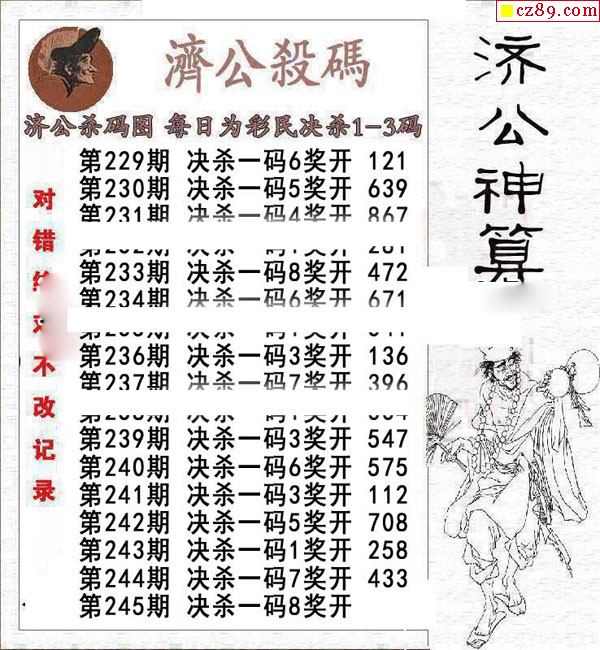 cz89.com
濟公殺碼
济公杀码图 每日为彩民决杀1-3码
第229期 决杀一码6奖开 121
第230期 决杀一码5奖开 639
第231期 决杀一码4奖开 867
第233期 决杀一码8奖开 472
第234期 决杀一码6奖开 671
第236期 决杀一码3奖开 136
第237期 决杀一码7奖开 396
第239期 决杀一码3奖开 547
第240期 决杀一码6奖开 575
第241期 决杀一码3奖开 112
第242期 决杀一码5奖开 708
第243期 决杀一码1奖开 258
第244期 决杀一码7奖开 433
第245期 决杀一码8奖开
对错 不改记录
济公神算